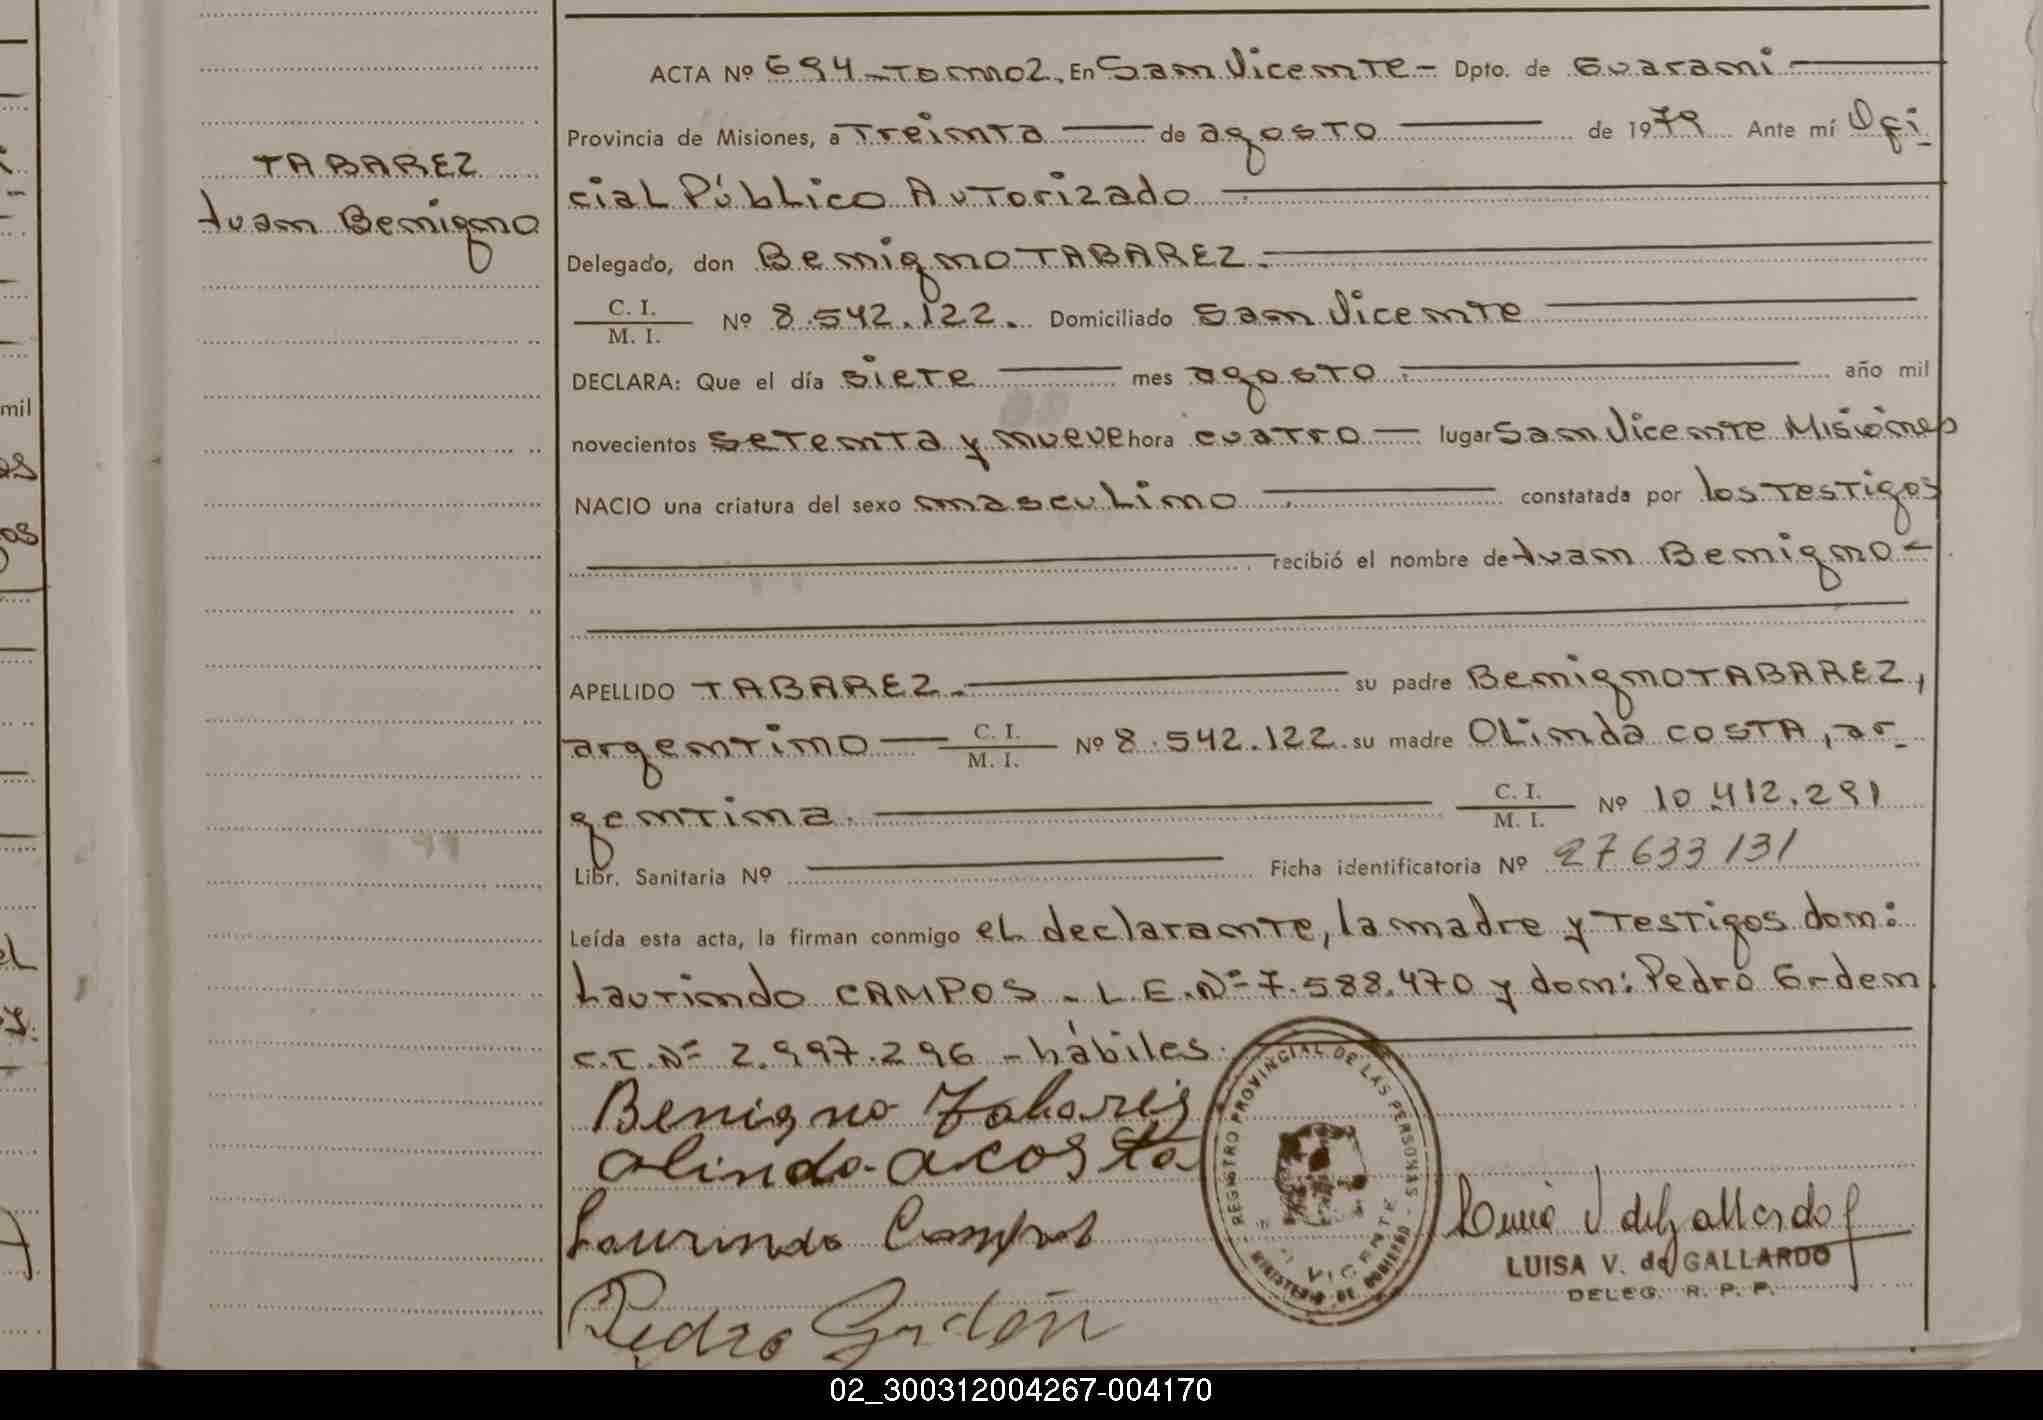 ACTA Nº 694 - Tomo 2. En San Vicente - Dpto. de Guarani
Provincia de Misiones, a Treinta de agosto de 1979 Ante mí Ofi
TABAREZ
Juan Benigno
cial Público Autorizado
Delegado, don Benigno TABAREZ.
C. I.
M. I.
Nº 8.542.122. Domiciliado San Vicente
DECLARA: Que el día siete mes agosto año mil
novecientos setenta y nueve hora cuatro lugar San Vicente Misiones
NACIO una criatura del sexo masculino constatada por los testigos
recibió el nombre de Juan Benigno -
APELLIDO TABAREZ. su padre Benigno TABAREZ,
argentino C. I. / M. I. Nº 8.542.122. su madre Olinda COSTA, ar-
gentina. C. I. / M. I. Nº 10.412.291
Libr. Sanitaria Nº Ficha identificatoria Nº 27633131
Leída esta acta, la firman conmigo el declarante, la madre y testigos don:
Laurindo CAMPOS - L.E.Nº 7.588.470 y don: Pedro Gorden
C.I.Nº 2.997.296 - hábiles.
Benigno Tabarez
Olinda acosta
Laurindo Campos
Pedro
REGISTRO PROVINCIAL DE LAS PERSONAS - MINISTERIO DE GOBIERNO
VICENTE
LUISA V. de GALLARDO
DELEG. R. P. P.
mil
os
os
02_300312004267-004170